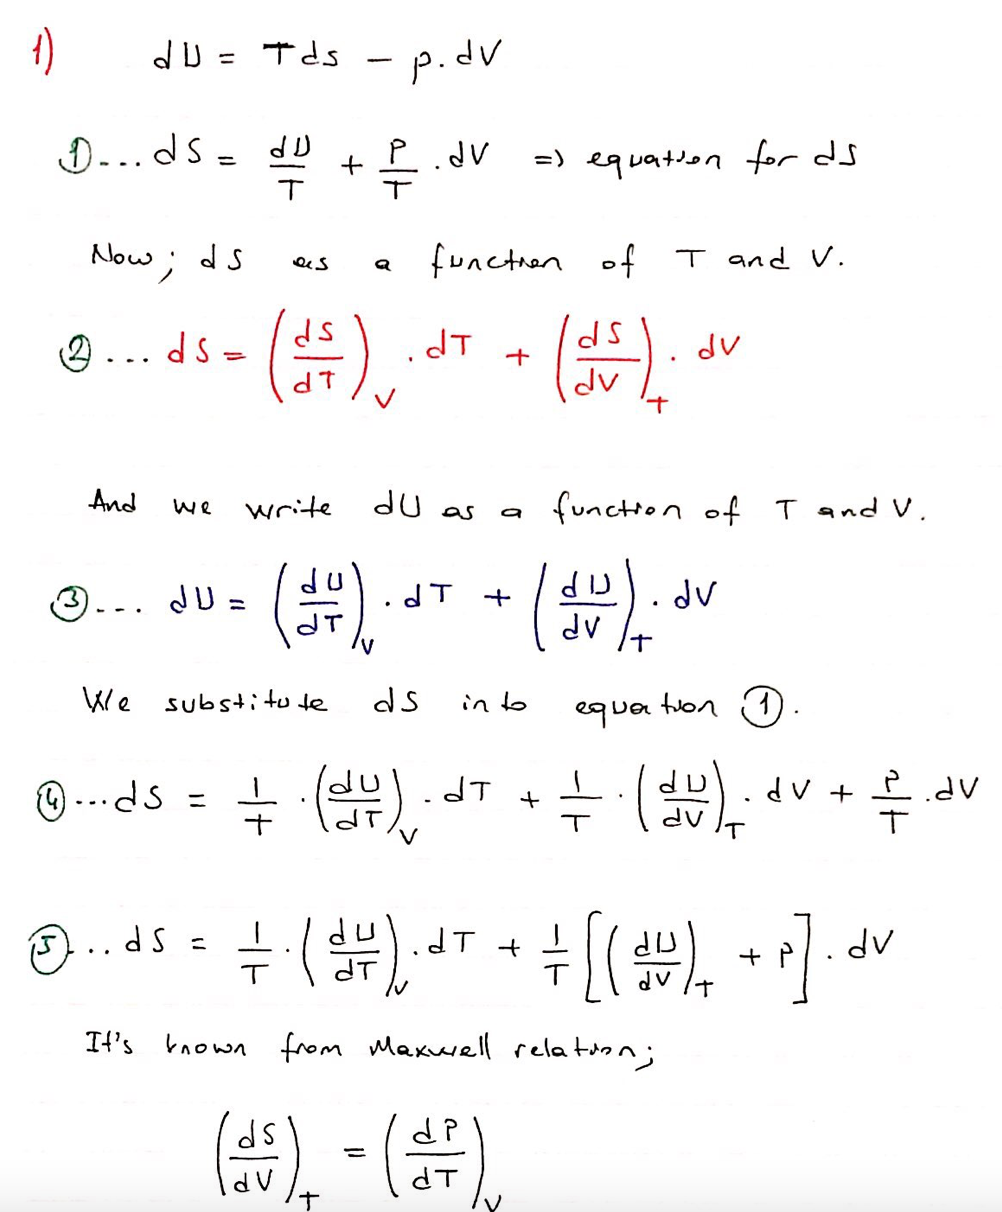 1) dU = Tds - p.dV
① ... dS = dU/T + P/T . dV => equation for ds
Now; dS as a function of T and V.
② ... dS = (dS/dT)_V . dT + (dS/dV)_T . dV
And we write dU as a function of T and V.
③ ... dU = (dU/dT)_V . dT + (dU/dV)_T . dV
We substitute dS into equation ①.
④ ... dS = 1/T . (dU/dT)_V . dT + 1/T . (dU/dV)_T . dV + P/T . dV
⑤ ... dS = 1/T . (dU/dT)_V . dT + 1/T [(dU/dV)_T + P] . dV
It's known from Maxwell relation;
(dS/dV)_T = (dP/dT)_V